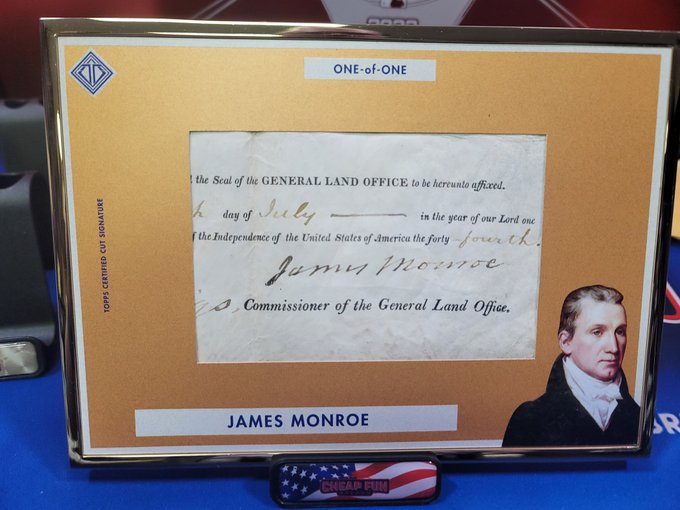 ONE-of-ONE
TOPPS CERTIFIED CUT SIGNATURE
the Seal of the GENERAL LAND OFFICE to be hereunto affixed.
h day of July in the year of our Lord one
f the Independence of the United States of America the forty fourth.
James Monroe
gs, Commissioner of the General Land Office.
JAMES MONROE
CHEAP FUN